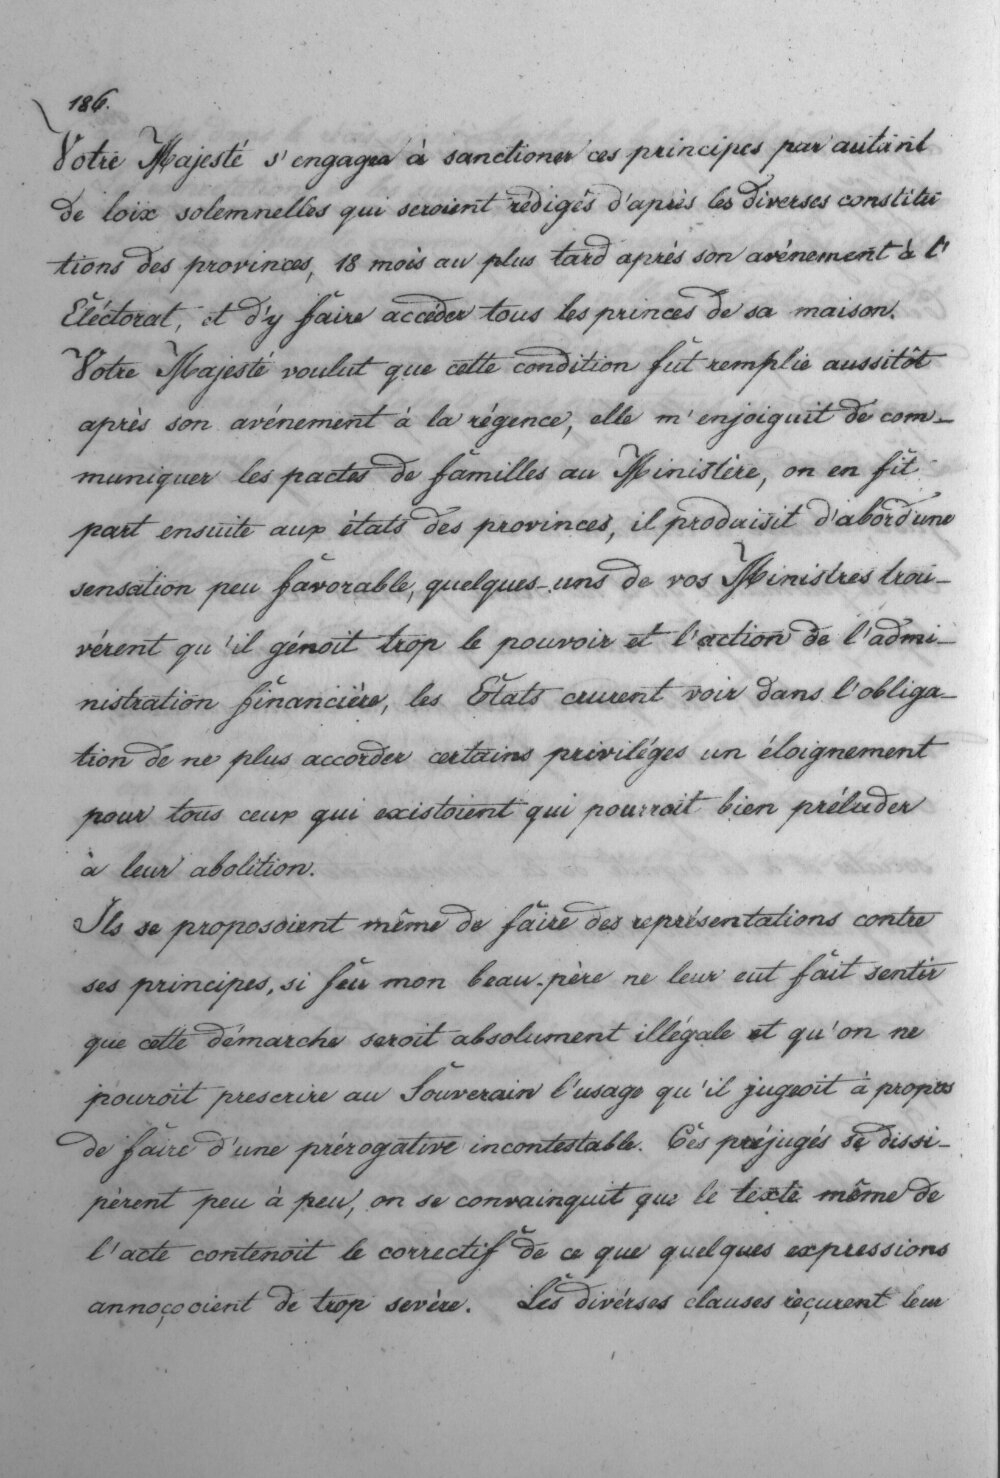 186.
Votre Majesté s'engagea à sanctioner ces principes par autant
de loix solemnelles qui seroient rédigés d'après les diverses constitu
tions des provinces, 18 mois au plus tard après son avénement à l'
Eléctorat, et d'y faire accéder tous les princes de sa maison.
Votre Majesté voulut que cette condition fut remplie aussitôt
après son avénement à la régence, elle m'enjoiguit de com-
muniquer les pactes de familles au Ministère, on en fit
part ensuite aux états des provinces, il produisit d'abord une
sensation peu favorable, quelques-uns de vos Ministres trou-
vérent qu'il génoit trop le pouvoir et l'action de l'admi-
nistration financière, les Etats crurent voir dans l'obliga-
tion de ne plus accorder certains priviléges un éloignement
pour tous ceux qui existoient qui pourroit bien préluder
à leur abolition.
Ils se proposoient même de faire des représentations contre
ses principes, si feu mon beau-père ne leur eut fait sentir
que cette démarche seroit absolument illégale et qu'on ne
pouroit prescrire au Souverain l'usage qu'il jugeoit à propos
de faire d'une prérogative incontestable. Ces préjugés se dissi-
pèrent peu à peu, on se convainquit que le texte même de
l'acte contenoit le correctif de ce que quelques expressions
annoçoient de trop sevère. Les divérses clauses reçurent leur